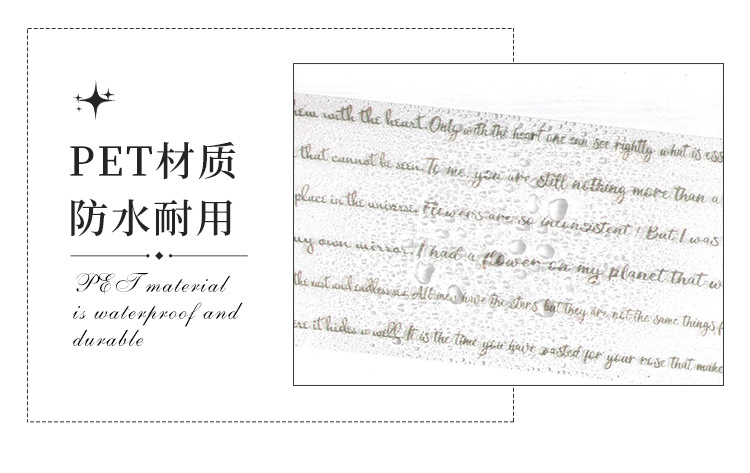 PET材质
防水耐用
PET material
is waterproof and
durable
them with the heart. Only with the heart one can see rightly what is ess
that cannot be seen. To me, you are still nothing more than a
place in the universe. Flowers are so inconsistent! But I was
my own mirror. I had a flower on my planet that w
the vast and endless sea. All men have the stars but they are not the same things f
ere it hides a well. It is the time you have wasted for your rose that make